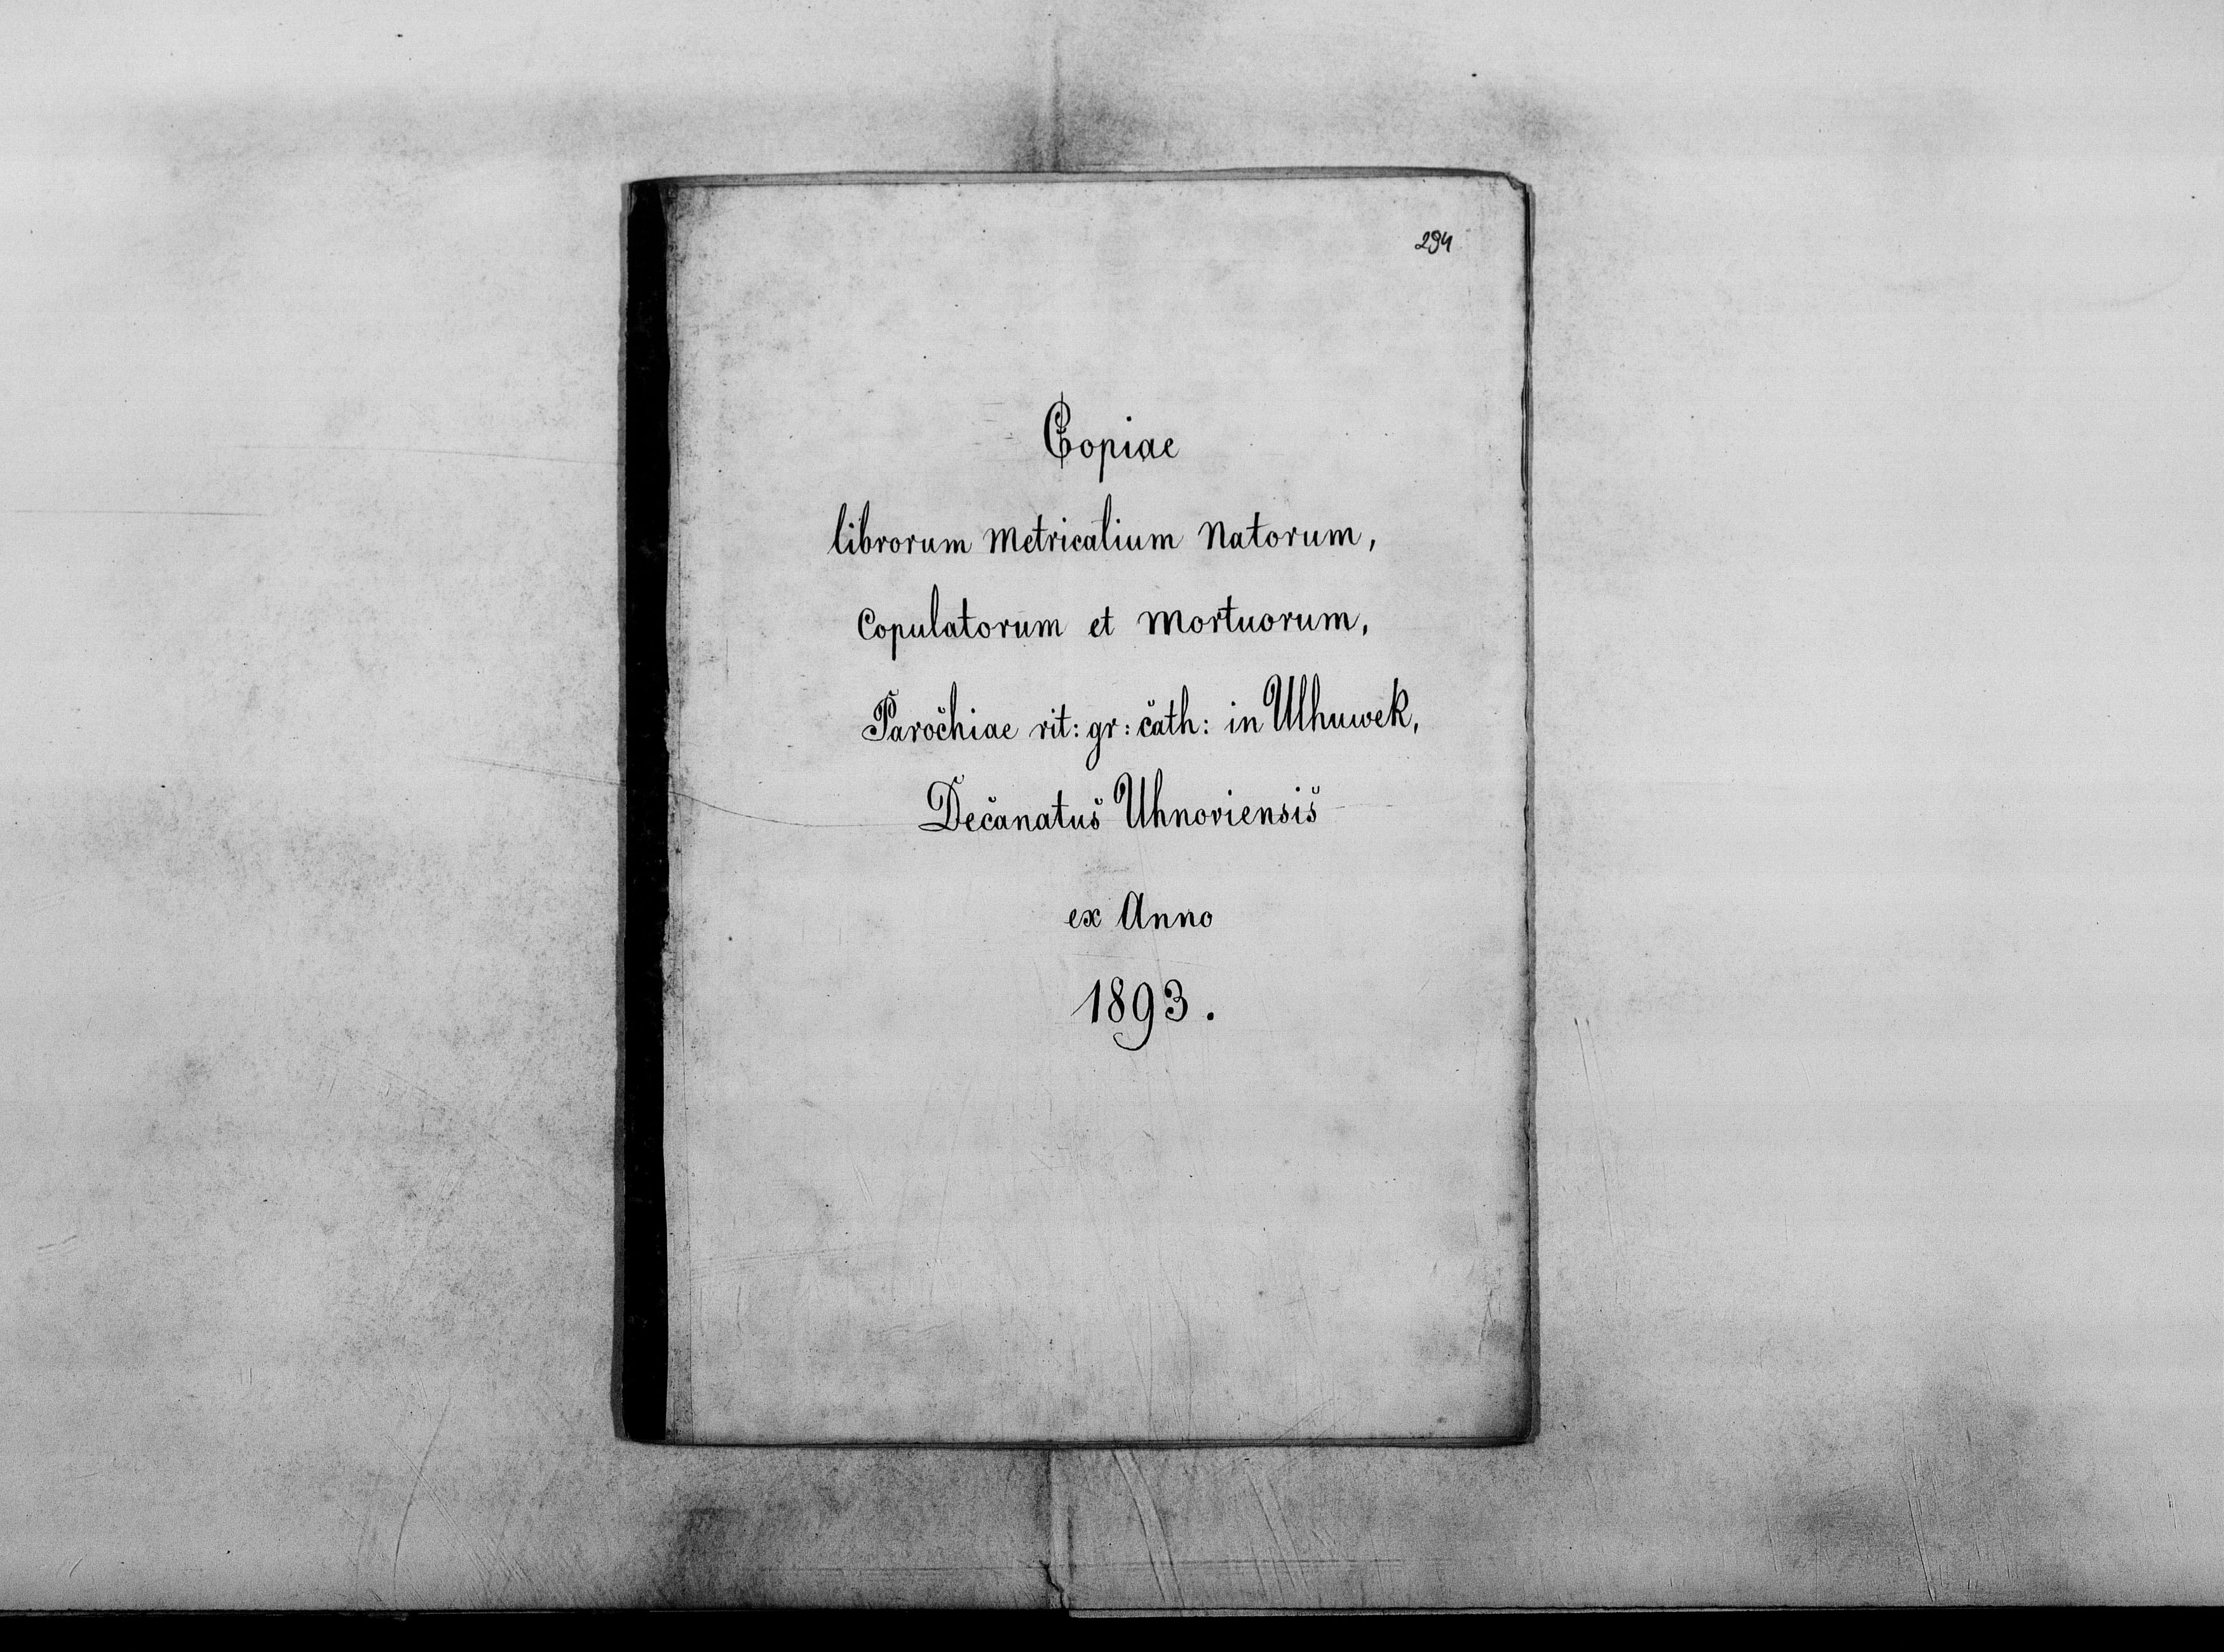 294
Copiae
librorum Metricalium Natorum,
Copulatorum et Mortuorum,
Paročhiae rit: gr: čath: in Ulhuwek,
Dečanatuš Uhnoviensiš
ex Anno
1893.